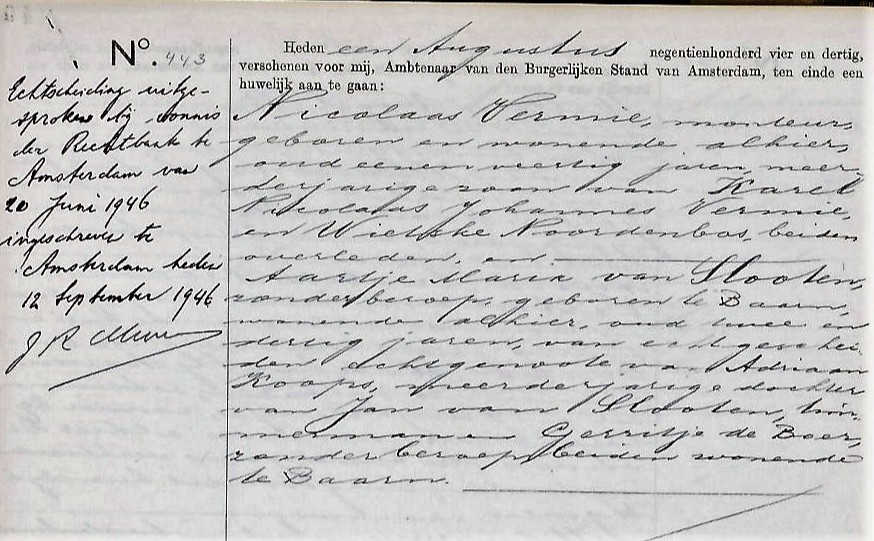 Nº. 443
Echtscheiding uitge-
sproken bij vonnis
der Rechtbank te
Amsterdam van
20 Juni 1946
ingeschreven te
Amsterdam heden
12 September 1946
Heden een Augustus negentienhonderd vier en dertig,
verschenen voor mij, Ambtenaar van den Burgerlijken Stand van Amsterdam, ten einde een
huwelijk aan te gaan:
Nicolaas Vermie, monteur,
geboren en wonende alhier,
oud eenen veertig jaren, meer-
derjarige zoon van Karel
Nicolaas Johannes Vermie,
en Wietske Noordenbos, beiden
overleden, en
Aartje Maria van Slooten,
zonder beroep, geboren te Baarn,
wonende alhier, oud twee en
dertig jaren, van echtgeschei-
den echtgenoote van Adriaan
Koops, meerderjarige dochter
van Jan van Slooten, tim-
merman en Gerritje de Boer,
zonder beroep, beiden wonende
te Baarn.